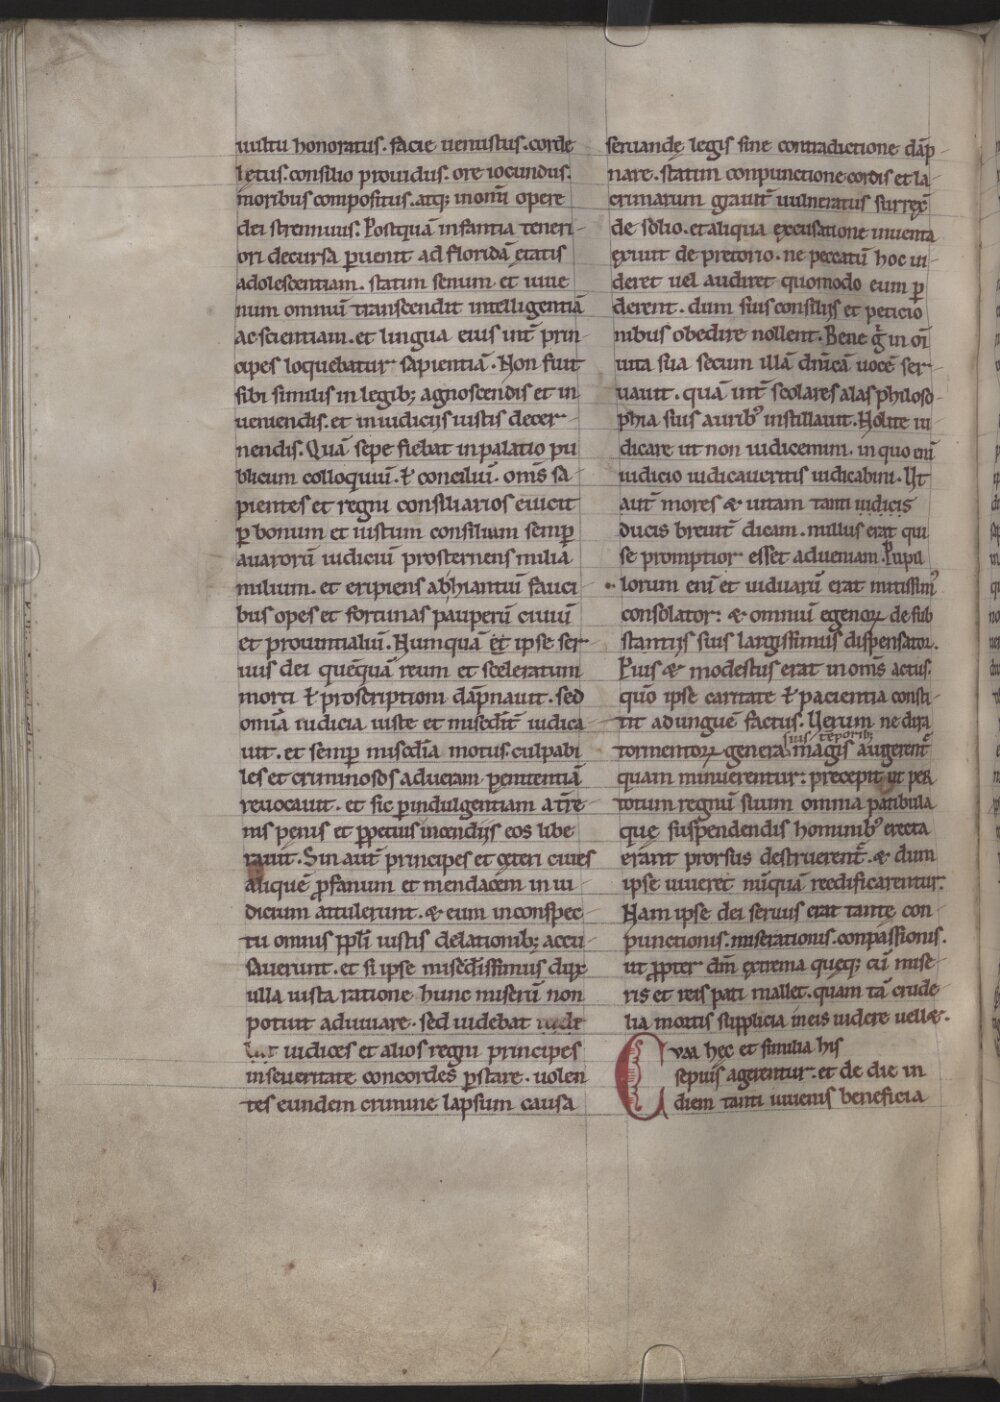 uultu honoratus. facie uenustus. corde
letus. consilio prouidus. ore iocundus.
moribus compositus. atq; inomī opere
dei strennuus. Postquā infantia teneri-
ori decursa ꝑuenit ad floridā ętatis
adolescentiam. statim senum et iuue
num omniū transcendit intelligentiā
ac scientiam. et lingua eius int̄ prin-
cipes loquebatur sapientiā. Non fuit
sibi similis in legib; agnoscendis et in
ueniendis. et in iudicijs iustis decer-
nendis. Quā sepe fiebat in palatio pu
blicum colloquiū. ł conciliū. om̄s sa
pientes et regni consiliarios euicit
ꝑ bonum et iustum consilium semꝑ
auarorū iudiciū prosternens milia
milium. et eripiens abhiantiū fauci
bus opes et fortunas pauperū ciuiū
et prouintialiū. Numquā et ipse ser-
uus dei quēquā reum et sceleratum
morti ł proscriptioni dāpnauit. sed
omīa iudicia iuste et misedīt iudica
uit. et semꝑ misedīa motus. culpabi
les et criminosos adueram penitentiā
reuocauit. et sic ꝑ indulgentiam at̄re
nis penis et ꝑpetuis incendijs eos libe
rauit. Sin aut̄ principes et cęteri ciues
aliquē ꝓfanum et mendacem in iu
dicium attulerunt. & eum inconspec-
tu omnis ppl̄i iustis delationib; accu-
sauerunt. et si ipse misedissimus dux
ulla iusta ratione hunc miserū non
potuit adiuuare. sed uidebat
iudices et alios regni principes
inseueritate concordes ꝑstare. uolen
tes eundem crimine lapsum causa
seruandę legis sine contradictione dāp-
nare. statim conpunctione cordis et la-
crimarum grauit̄ uulneratus surrex̄
de solio. et aliqua excusatione inuenta
exiuit de pretorio. ne peccatū hoc ui-
deret uel audiret quomodo eum ꝑ
derent. dum suis consilijs et peticio
nibus obedire nollent. Bene g̊ in oī
uita sua secum illā dn̄icā uocē ser-
uauit. quā int̄ scolares alas philoso-
phia suis aurib⁹ instillauit. Nolite iu
dicare ut non iudicemini. in quo enī
iudicio iudicaueritis iudicabim̄. Ut
aut̄ mores & uitam tanti iudicis
ducis breuit̄ dicam. nullus erat qui
se promptior esset ad ueniam. Pupil
lorum enī et uiduarū erat mitissim⁹
consolator: & omniū egenoꝝ de sub
stantijs suis largissimus dispensator.
Pius & modestus erat in om̄s actus.
quō ipse caritate ł pacientia consti-
tit ad unguē factus. Uerum ne dira
suis tēporib;
tormentoꝝ genera magis augerent̄
quam minuerentur: precepit ut per
totum regnū suum omnia patibula
que suspendendis hominib⁹ erecta
erant prorsus destruerent̄. & dum
ipse uiueret nūquā reedificarentur.
Nam ipse dei seruus erat tante con
punctionis. miserationis. conpassionis.
ut ꝓpter dm̄ extrema queq; cū mise-
ris et reis pati mallet. quam tā crude-
lia mortis supplicia in eis uidere uellet.
Cvm hec et similia his
sepius agerentur. et de die in
diem tanti iuuenis beneficia